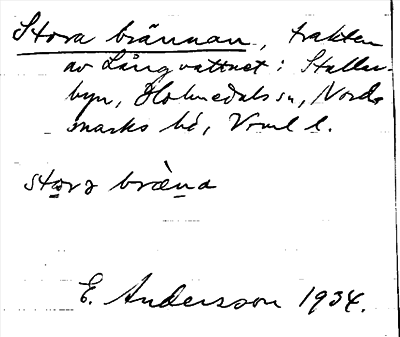 Stora brännan, trakten
av Långvattnet i Stallar-
byn, Holmedals sn, Nord-
marks hd, Vrml l.
storɜ bræ̀na
E. Andersson 1934.